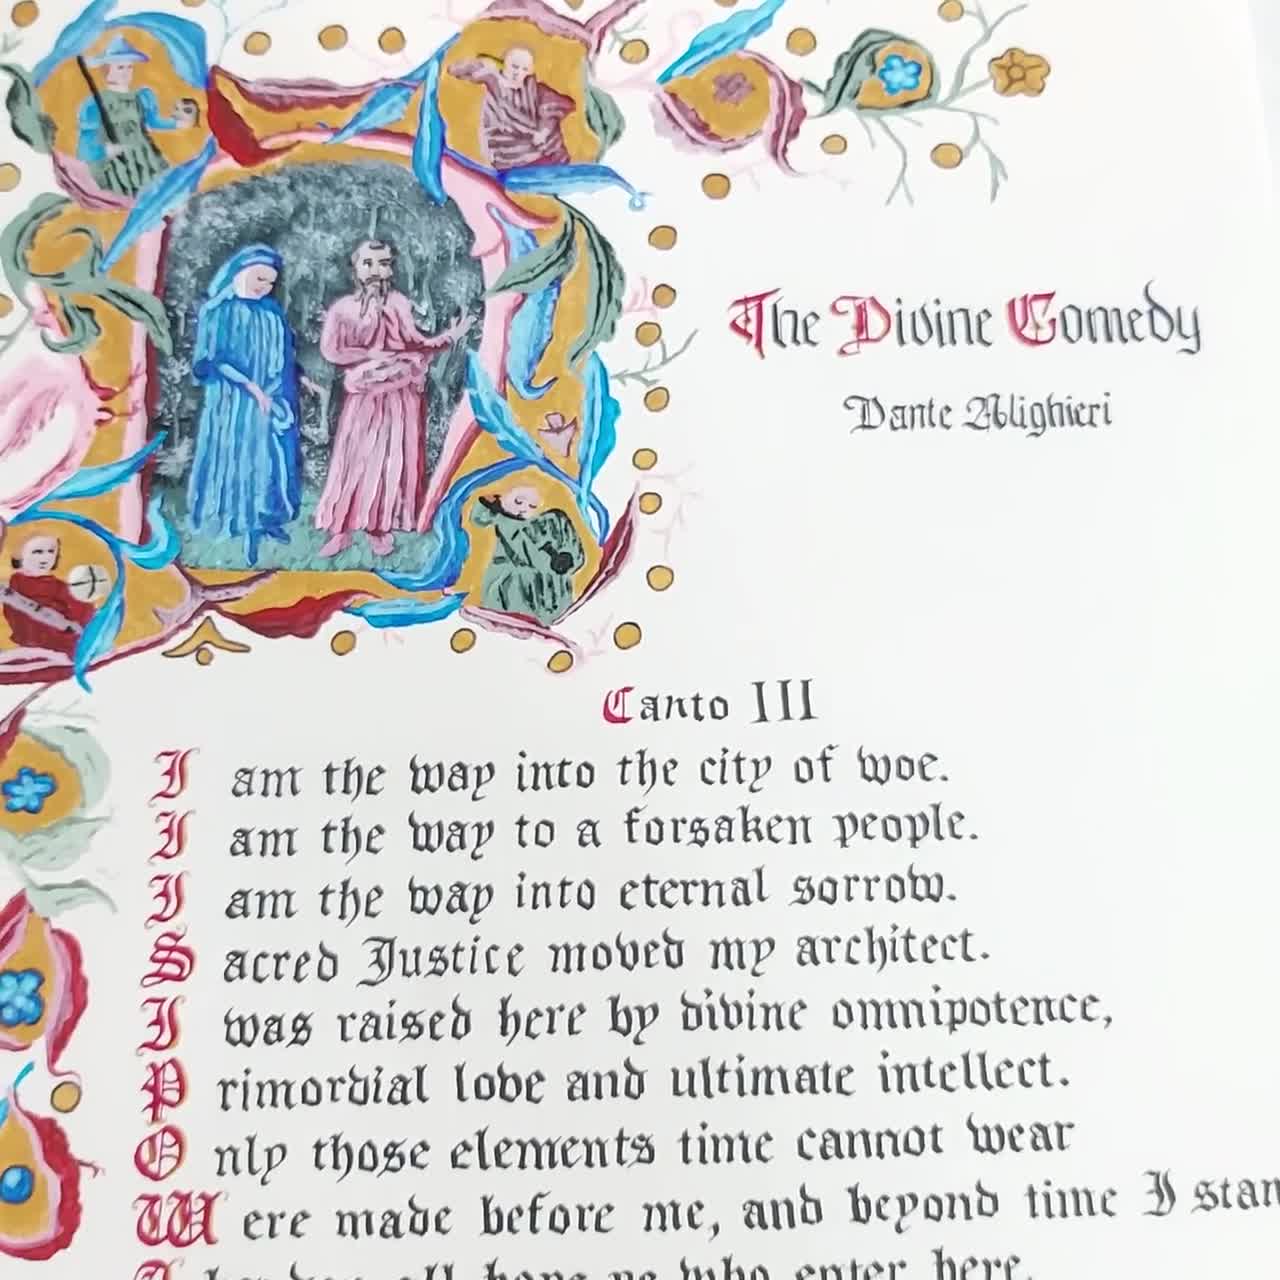 The Divine Comedy
Dante Alighieri
Canto III
I am the way into the city of woe.
I am the way to a forsaken people.
I am the way into eternal sorrow.
Sacred Justice moved my architect.
I was raised here by divine omnipotence,
Primordial love and ultimate intellect.
Only those elements time cannot wear
Were made before me, and beyond time I stan
all hope ye who enter here.